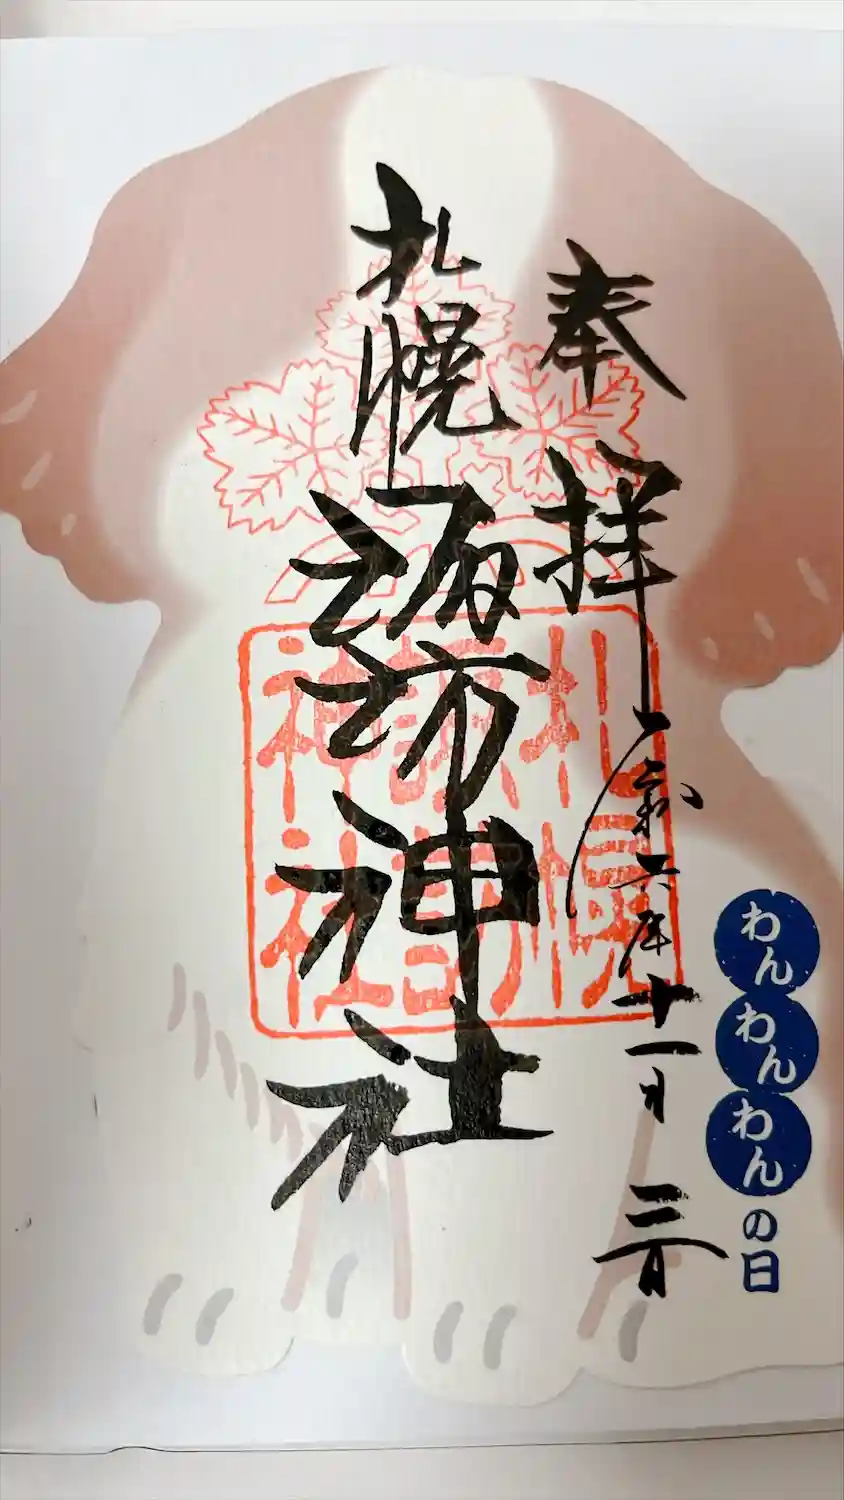 わんわんわんの日
奉拝 令和六年十一月三日
札幌諏訪神社
札幌
諏訪
神社